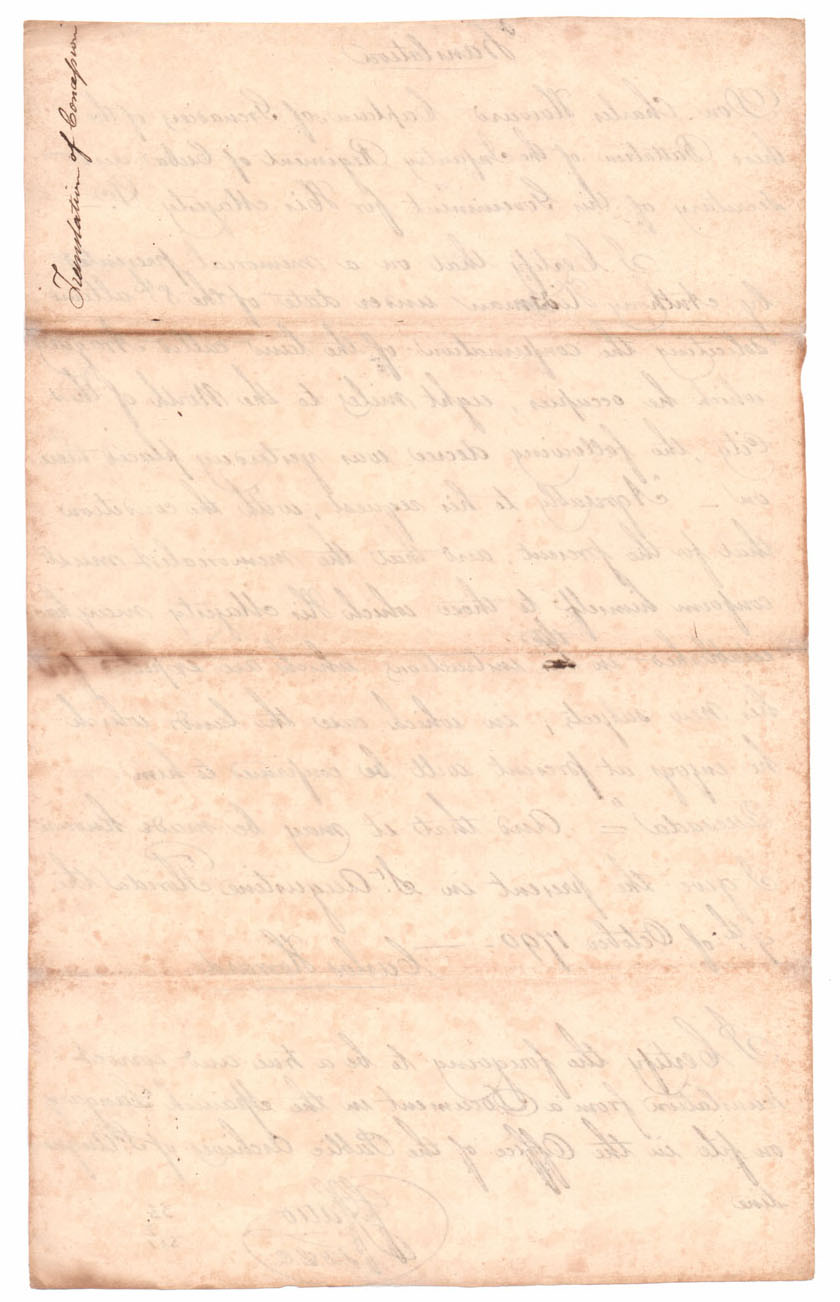 Translation of Concession
Translation
Don Charles Howard Captain of Grenadiers of the
third Battalion of the Infantry Regiment of Cuba and
Secretary of this Government for His Majesty
I Certify that on a memorial presented
by Anthony under date of the 8th
soliciting the confirmation of the land called
which he occupies, eight miles to the North of this
City, the following decree was yesterday placed there
on — Agreeably to his request, with the
that for the present and that the memorialist must
conform himself to those which His Majesty may have
in the instructions which are
his new subjects; in which case the lands which
he enjoys at present will be confirmed to him
= And that it may be made known
I give the present in St. Augustine Florida the
9th of October 1790. —
Carlos Howard
I Certify the foregoing to be a true and correct
translation from a Document in the Spanish language
on file in the Office of the Public Archives of St. Augus
tine